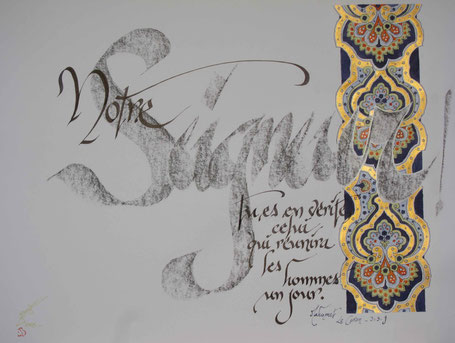 Notre
Seigneur !
Tu es en vérité
celui
qui réunira
les
hommes
un jour.
Le Coran - 3:9